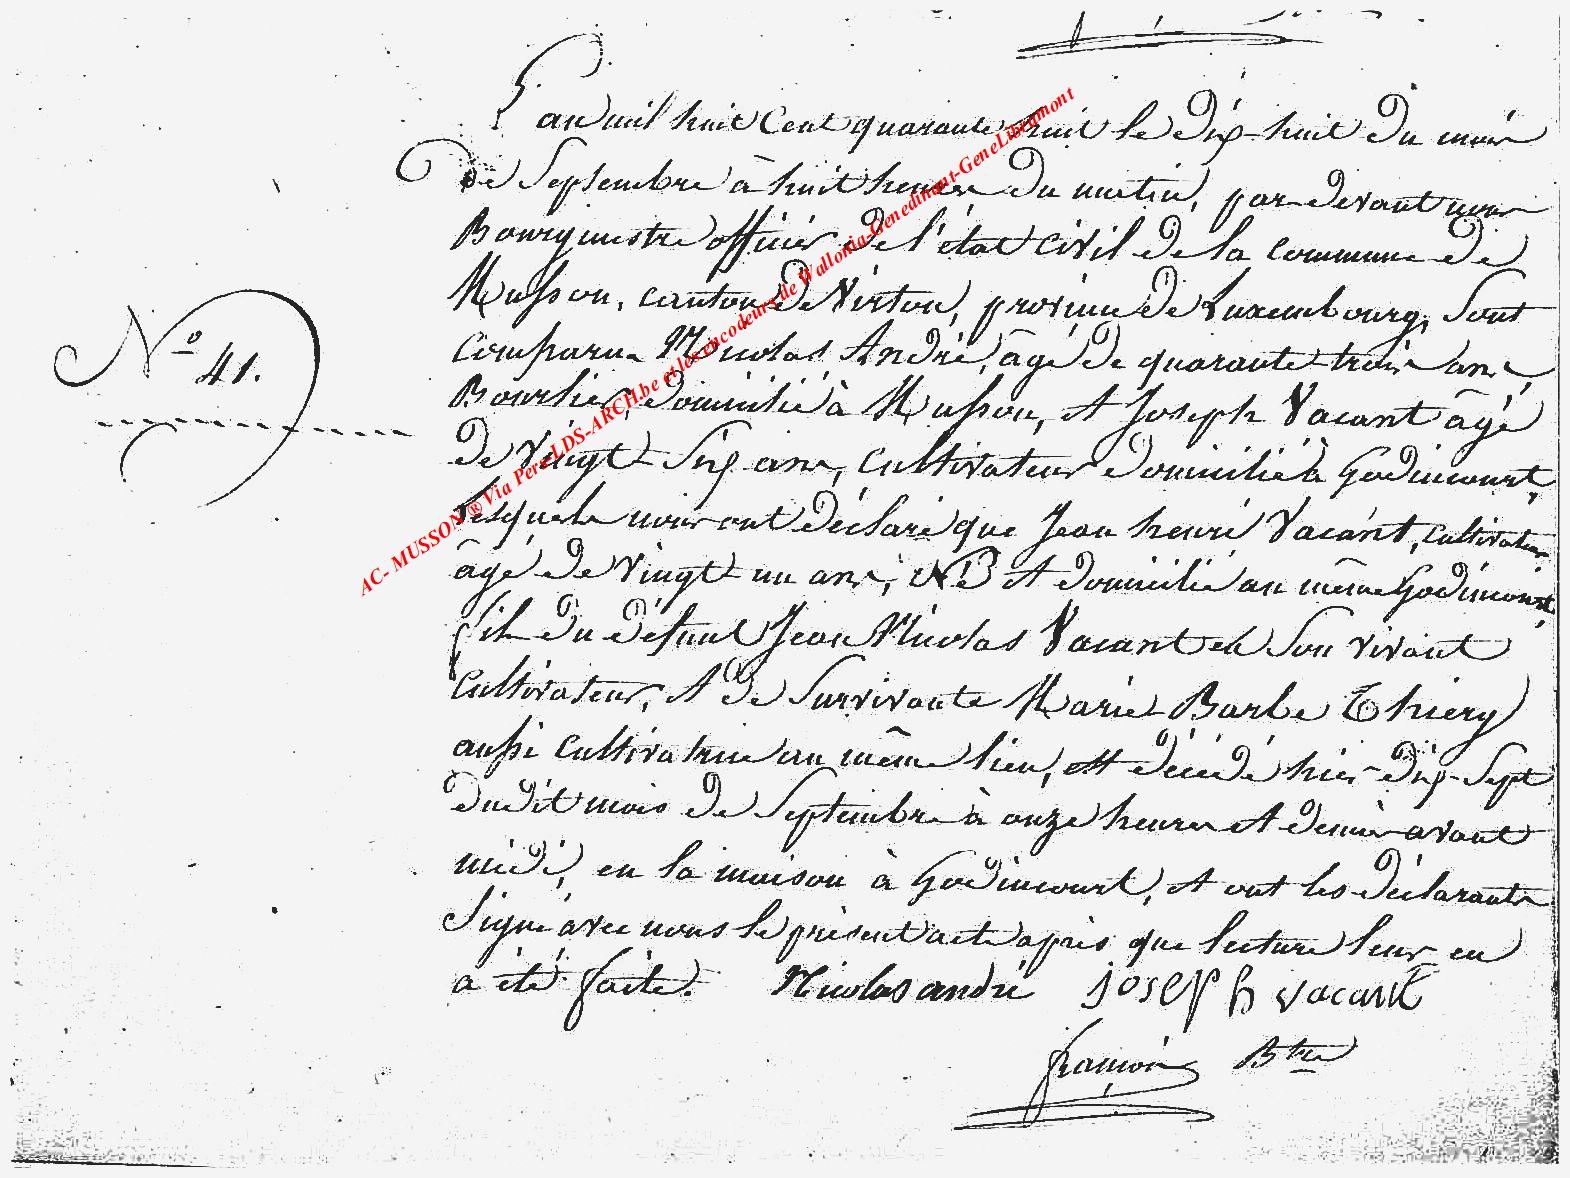 L'an mil huit Cent quarante huit le dix-huit du mois
de Septembre à huit heures du matin, par devant nous
Bourgmestre officier de l'état civil de la commune de
Musson, canton de Virton, province de Luxembourg, Sont
comparus Nicolas André, âgé de quarante trois ans,
N.º 41.
Bourlier, domicilié à Musson, et Joseph Vacant âgé
de vingt Six ans, cultivateur domicilié à Godincourt,
lesquels nous ont déclaré que Jean henri Vacant, cultivateur
âgé de vingt un ans, Né et domicilié au même Godincourt,
fils du défunt Jean Nicolas Vacant en Son vivant
cultivateur, et de Survivante Marie Barbe Thiery
aussi cultivatrice au même lieu, est décédé hier dix-Sept
dudit mois de Septembre à onze heures et demie avant
midi, en la maison à Godincourt, et ont les déclarants
Signé avec nous le présent acte après que lecture leur en
a été faite. Nicolas andré joseph vacant
Btre
AC- MUSSON ® Via Pers LDS-ARCH.be et les encodeurs de Wallonia-Genedinant-GeneLibramont